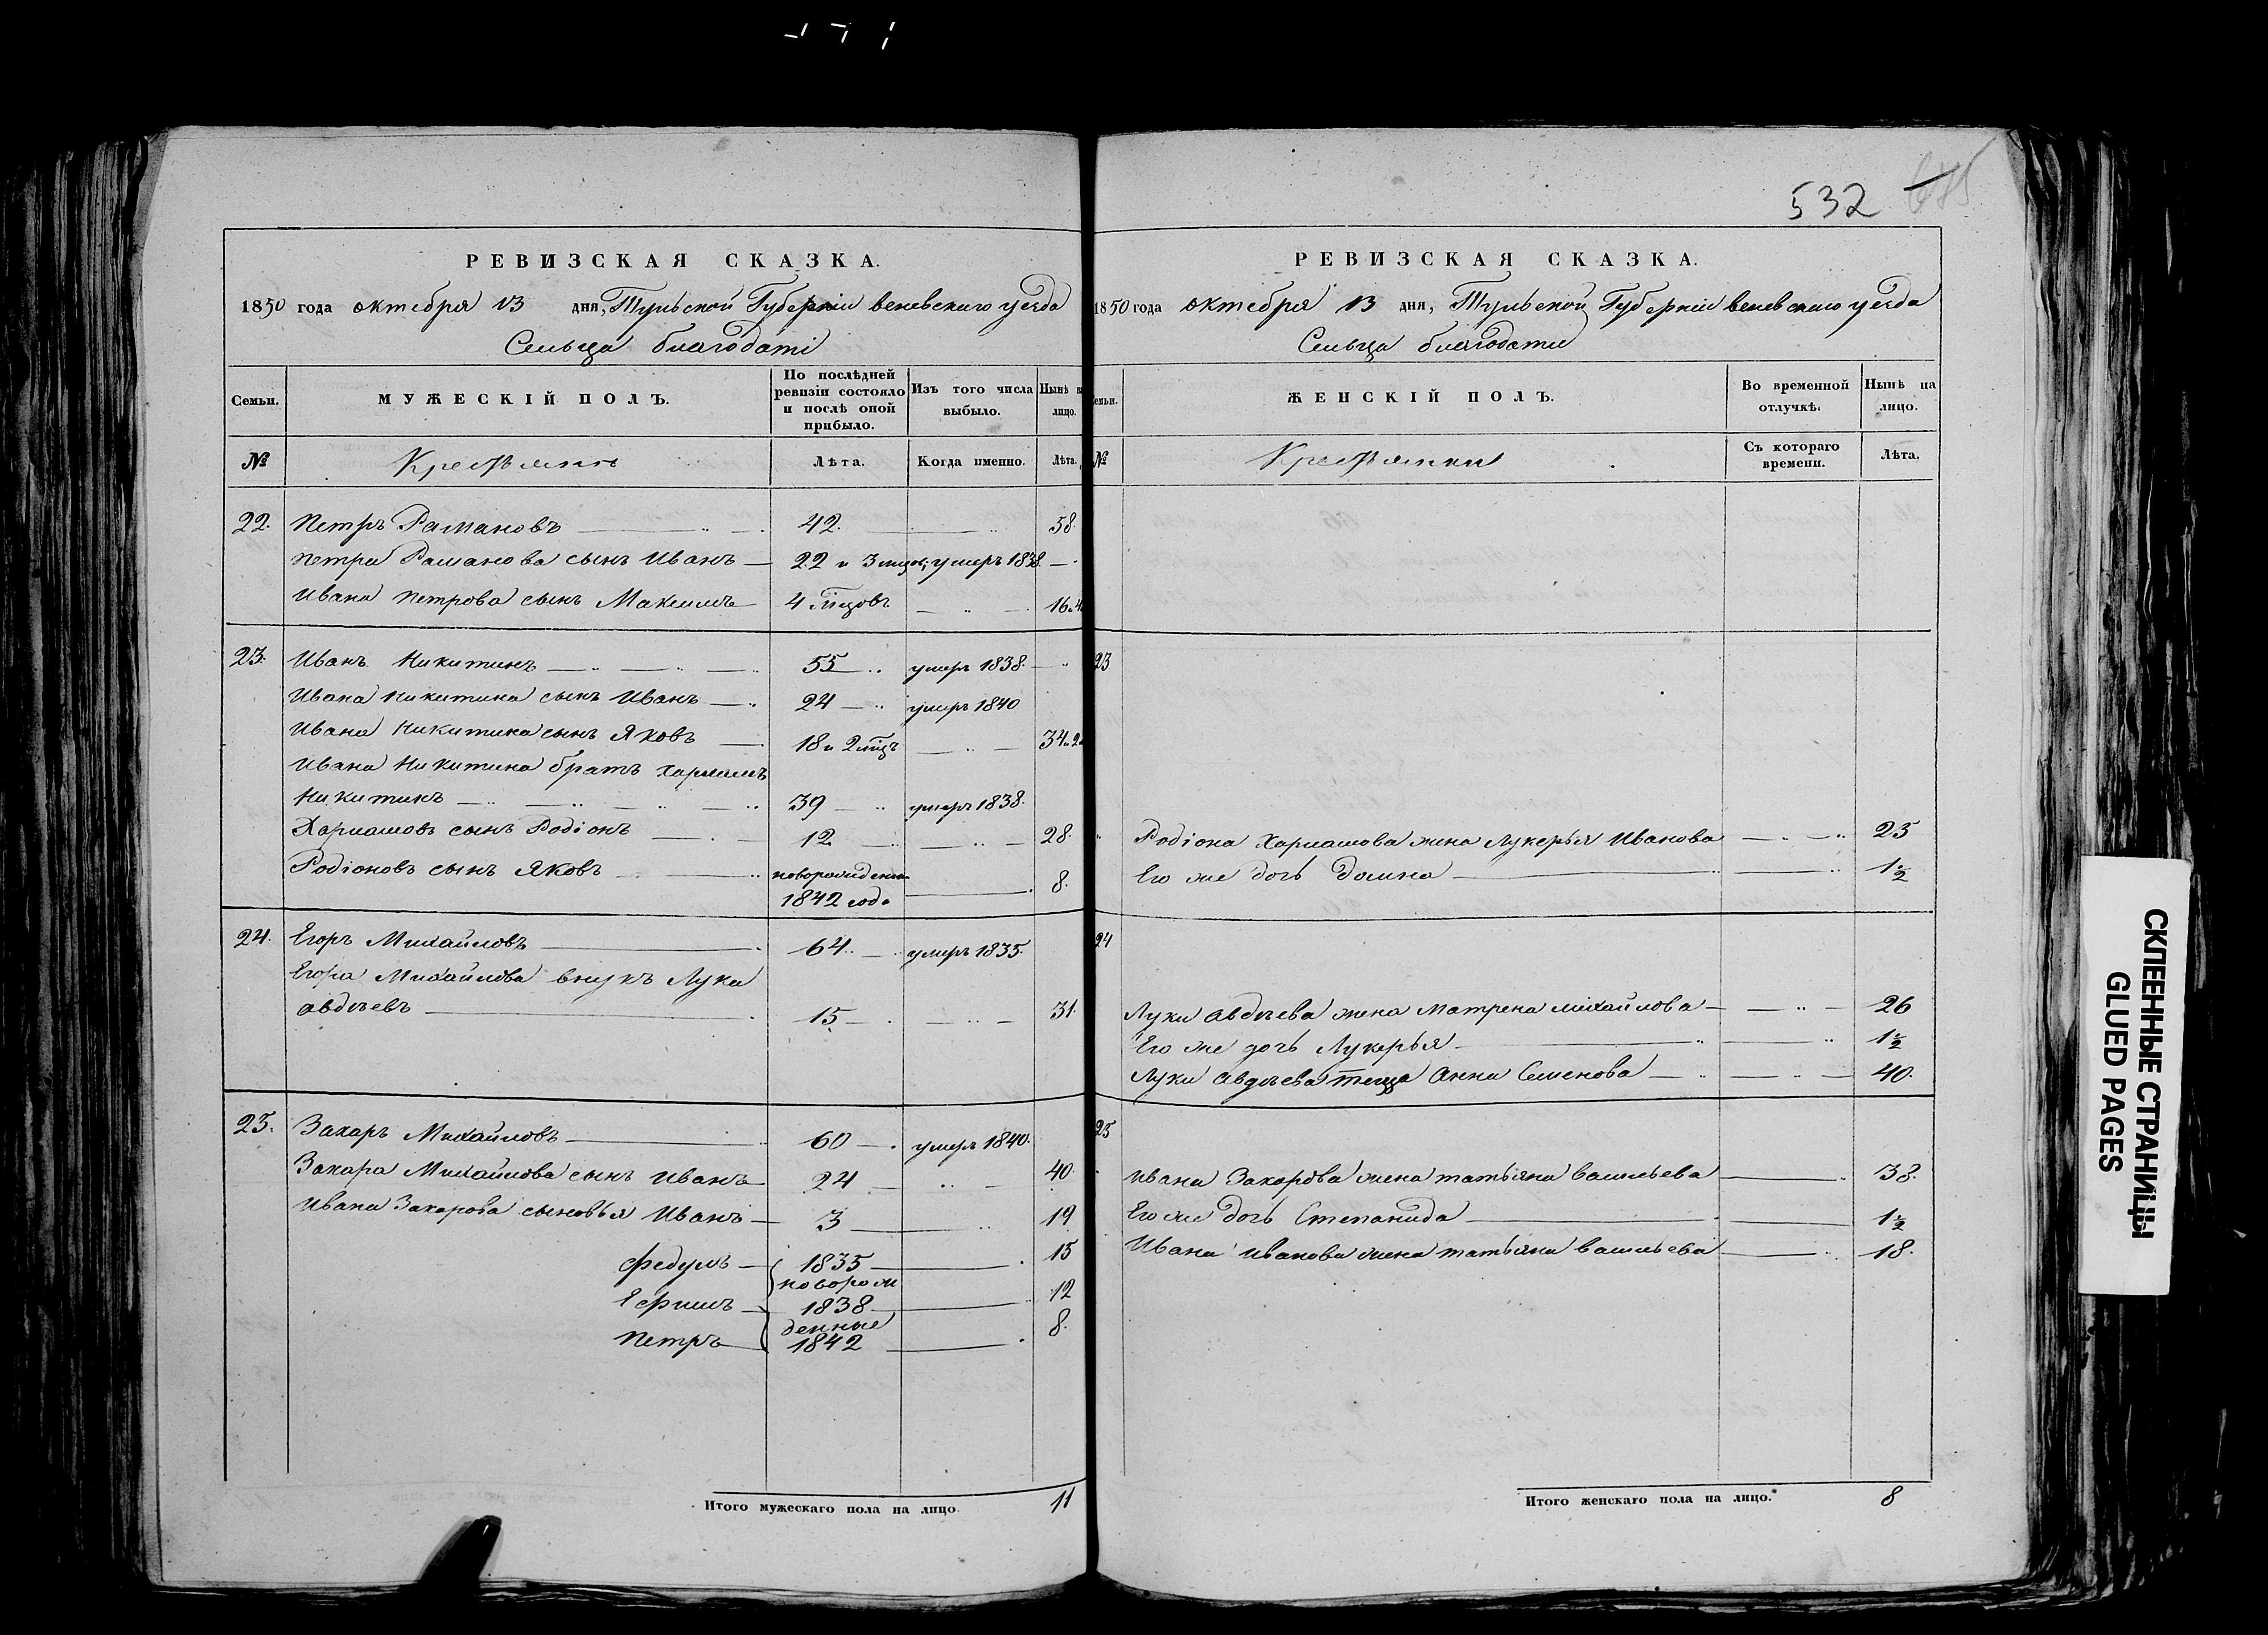 532
РЕВИЗСКАЯ СКАЗКА.
1850 года октебря 13 дня, Тульской Губерніи веневскаго уезда
Сельца благодаті
Семьи.
МУЖЕСКІЙ ПОЛЪ.
По послѣдней ревизіи состояло и послѣ оной прибыло.
Изъ того числа выбыло.
Нынѣ на лицо.
№ Крестьянъ Лѣта. Когда именно. Лѣта.
22. Петръ Рамановъ 42. 58.
Петра Раманова сынъ Иванъ 22 и 3 умеръ 1838
Ивана Петрова сынъ Максимъ 4 мцовъ 16 и 4
23. Иванъ Никитинъ 55 умеръ 1838.
Ивана Никитина сынъ Иванъ 24 умеръ 1840
Ивана Никитина сынъ Яковъ 18 и 2 мцъ 34 и 2
Ивана Никитина братъ Харламъ
Никитинъ 39 умеръ 1838.
Харламовъ сынъ Родіонъ 12 28.
Родіоновъ сынъ Яковъ новорожден 8.
1842 года
24. Егоръ Михайловъ 64. умеръ 1835.
Егора Михайлова внукъ Лука
авдѣевъ 15 31.
25. Захаръ Михайловъ 60 умеръ 1840.
Захара Михайлова сынъ Иванъ 24 40.
Ивана Захарова сыновья Иванъ 3 19
Федулъ 1835 15
новорож
Ефимъ 1838 12
денные
Петръ 1842 8.
Итого мужескаго пола на лицо. 11
РЕВИЗСКАЯ СКАЗКА.
1850 года октебря 13 дня, Тульской Губерніи веневскаго уезда
Сельца благодати
Семьи.
ЖЕНСКІЙ ПОЛЪ.
Во временной отлучкѣ.
Нынѣ на лицо.
№ Крестьянки Съ котораго времени. Лѣта.
23
Родіона Харламова жена Лукерья Иванова 25
Его же дочь Домна 1½
24
Луки авдѣева жена Матрена михайлова 26
Его же дочь Лукерья 1½
Луки авдѣева теща Анна Семенова 40.
25
Ивана Захарова жена татьяна васильева 38.
Его же дочь Степанида 1½
Ивана Иванова жена татьяна васильева 18.
Итого женскаго пола на лицо. 8
СКЛЕЕННЫЕ СТРАНИЦЫ
GLUED PAGES